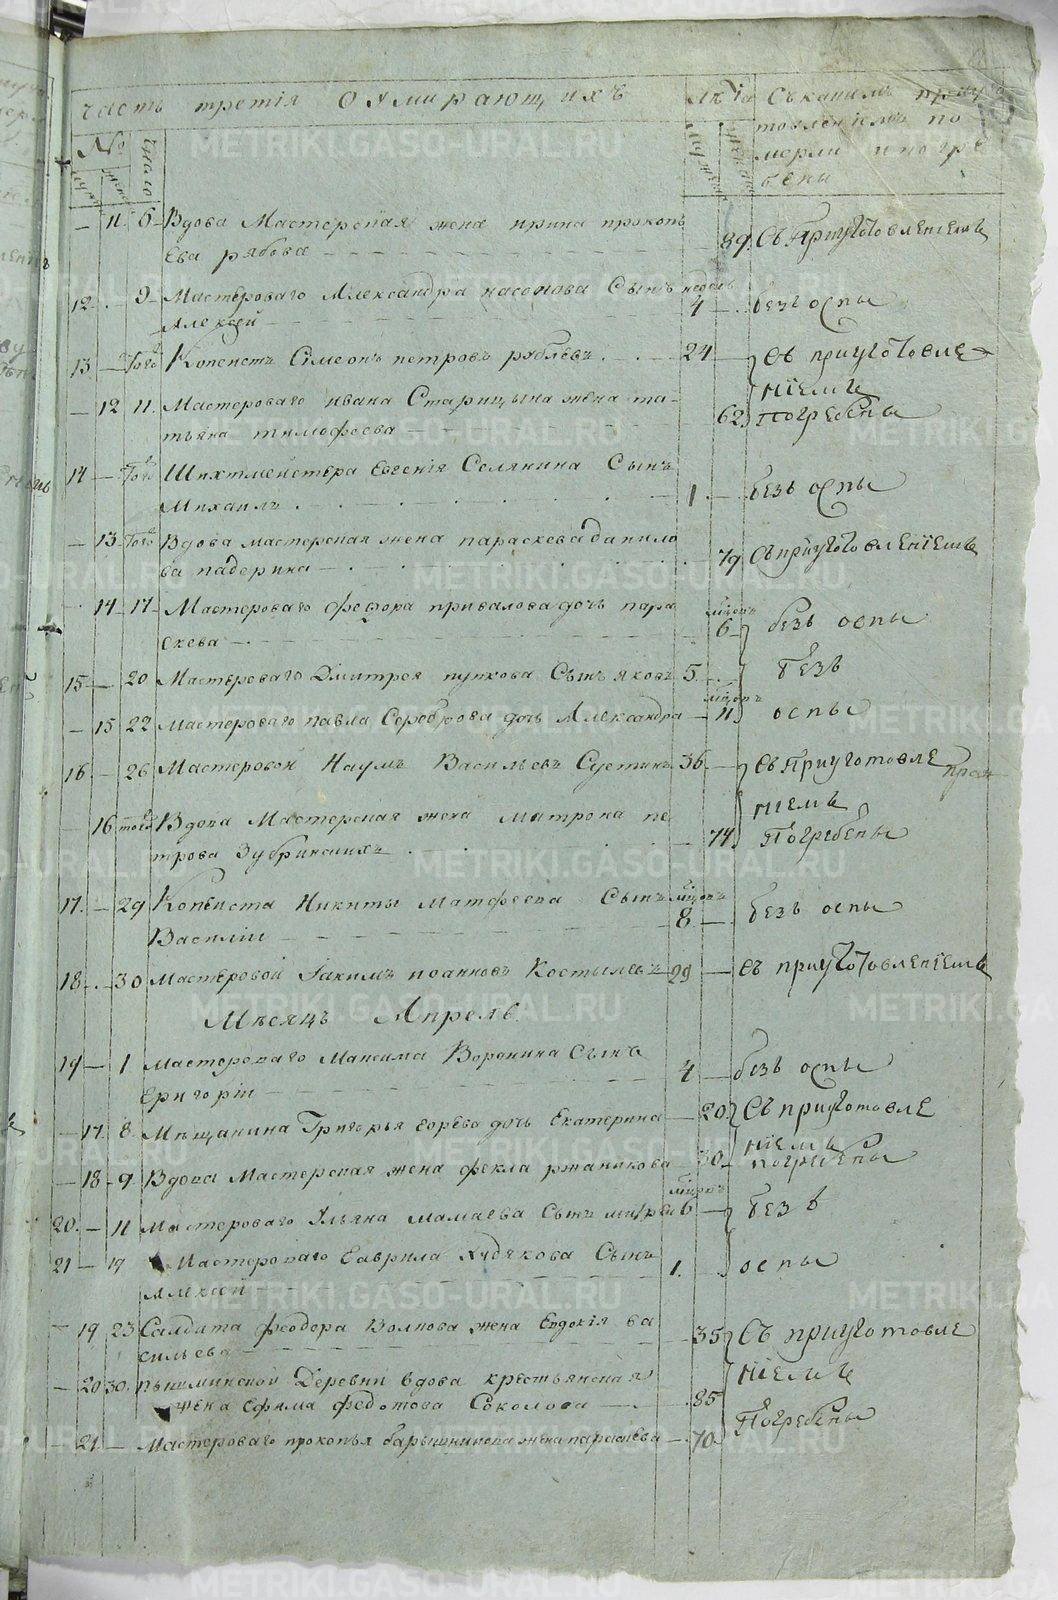 часть третія О Умирающихъ
Лѣта
Съ какимъ приуго
товленіемъ по
мерли и погре
бены
№
число
11 6 Вдова Мастерская жена ирина прокопь
ева рябова 89 Съ приуготовленіемъ
12 9 Мастероваго Александра насонова Сынъ недель
Алексѣй 4 безъ оспы
13 Того Копеистъ Симеонъ петровъ рублевъ 24 Съ приуготовле
ніемъ
12 11 Мастероваго ивана Старицына жена та-
тьяна тимофеева 62 погребены
14 Того Шихтмейстера Евгенія Селянина Сынъ
Михаилъ 1 безъ оспы
13 Того Вдова мастерская жена параскева данило
ва падерина 79 Съ приуготовленіемъ
14 17 Мастероваго Федора привалова дочь пара
скева 6 безъ оспы
15 20 Мастероваго Дмитрея пупкова Сынъ яковъ 5 безъ
15 22 Мастероваго павла Сереброва дочь Александра 11 оспы
16 26 Мастеровой Наумъ Васильевъ Сустинъ 36 Съ Приуготовле
ніемъ
16 того Вдова Мастерская жена Матрона пе
трова Зубринскихъ 74 Погребены
17 29 Копеиста Никиты Матфеева Сынъ
Василіи 8 безъ оспы
18 30 Мастеровой Іакимъ иоанновъ Костылевъ 29 Съ приуготовленіемъ
Мѣсяцъ Апрель
19 1 Мастероваго Максима Воронина Сынъ
Григоріи 4 безъ оспы
17 8 Мѣщанина Григорья дочь Екатерина 20 Съ приуготовле
ніемъ
18 9 Вдова Мастерская жена фекла ржаникова 30 погребены
20 11 Мастероваго Ульяна мамаева Сынъ 6 безъ
21 17 Мастероваго Гаврила Худякова Сынъ
Алексѣй 1 оспы
19 23 Салдата Феодора Волкова жена Евдокія ва
сильева 35 Съ приуготовле
ніемъ
20 30 пышминской Деревни вдова крестьянская
жена Ефима Федотова Соколова 85
Погребены
21 Мастероваго прокопья барышникова жена параскева 70
METRIKI.GASO-URAL.RU